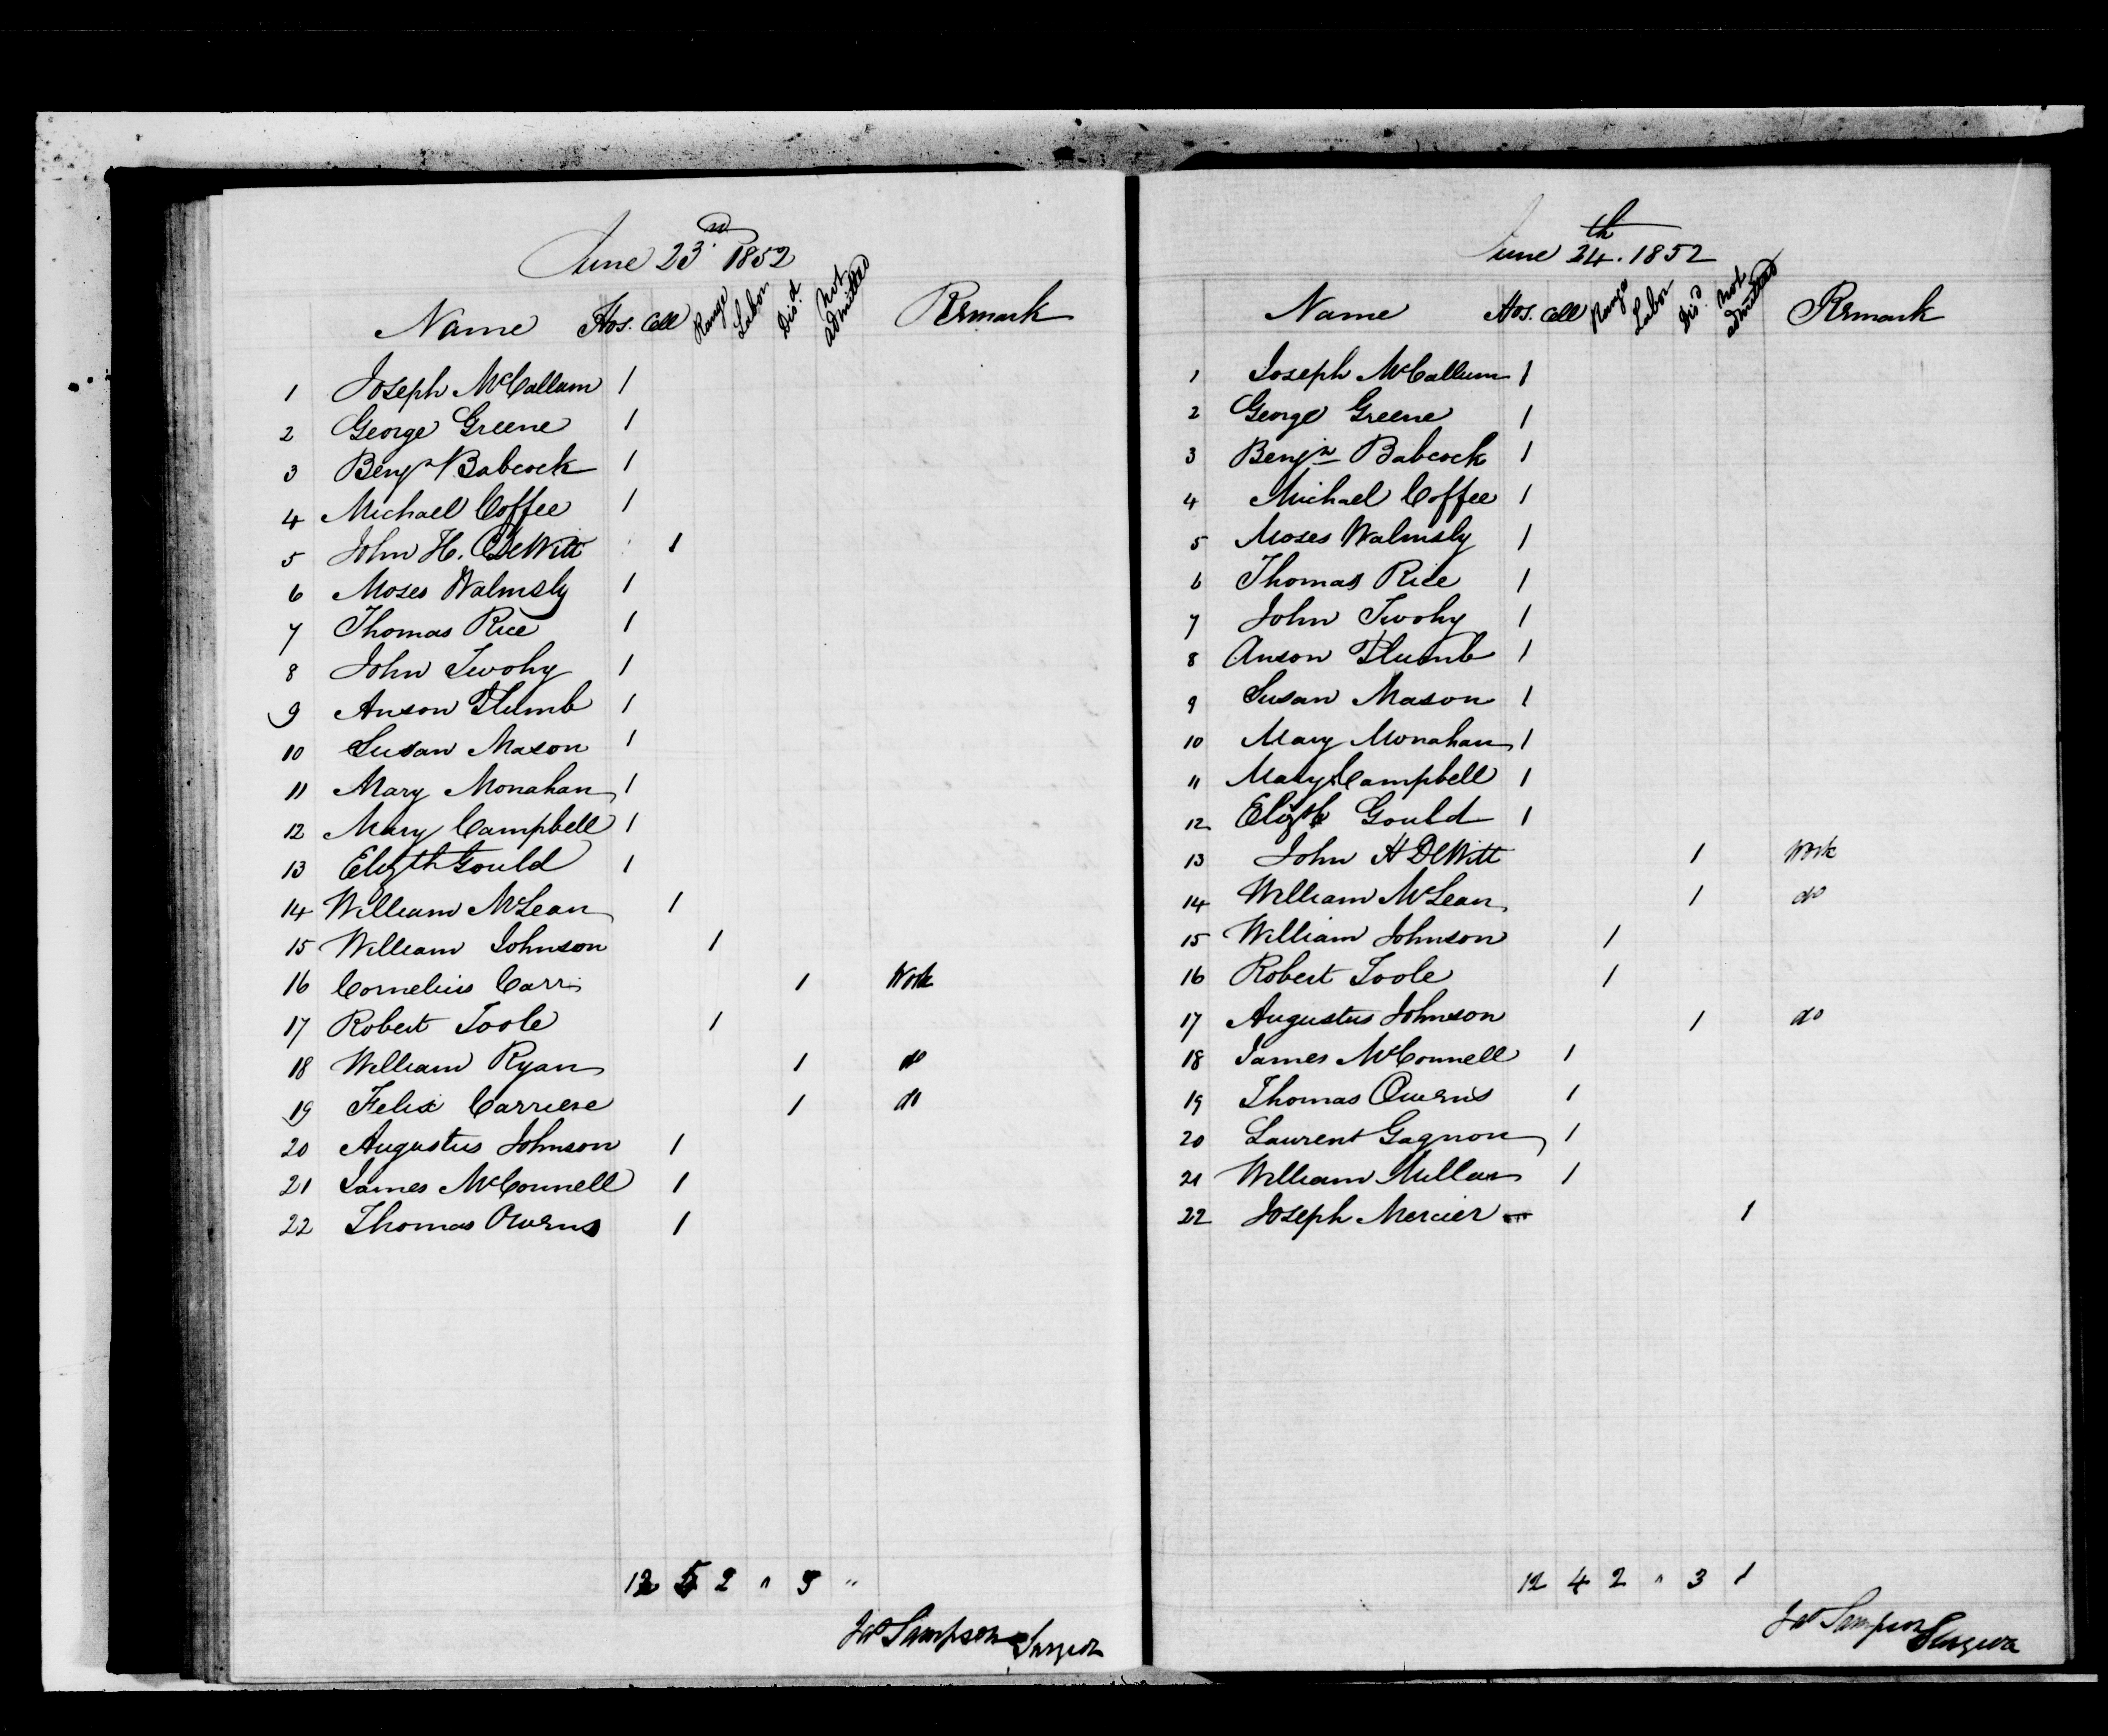 June 23.d 1852
Name Hos. Cell Range Labor Dis.d Not admitted Remark
1 Joseph McCallum 1
2 George Greene 1
3 Benjn Babcock 1
4 Michael Coffee 1
5 John H. DeWitt 1
6 Moses Walmsly 1
7 Thomas Rice 1
8 John Twohy 1
9 Anson Plumb 1
10 Susan Mason 1
11 Mary Monahan 1
12 Mary Campbell 1
13 Elizth Gould 1
14 William McLean 1
15 William Johnson 1
16 Cornelius Carr 1 Work
17 Robert Toole 1
18 William Ryan 1 do
19 Felix Carriere 1 do
20 Augustus Johnson 1
21 James McConnell 1
22 Thomas Owens 1
12 5 2 " 3 "
Jas Sampson Surgeon
June 24th. 1852
Name Hos. Cell Range Labor Dis.d Not admitted Remark
1 Joseph McCallum 1
2 George Greene 1
3 Benjn Babcock 1
4 Michael Coffee 1
5 Moses Walmsly 1
6 Thomas Rice 1
7 John Twohy 1
8 Anson Plumb 1
9 Susan Mason 1
10 Mary Monahan 1
11 Mary Campbell 1
12 Elizth Gould 1
13 John H DeWitt 1 Work
14 William McLean 1 do
15 William Johnson 1
16 Robert Toole 1
17 Augustus Johnson 1 do
18 James McConnell 1
19 Thomas Owens 1
20 Laurent Gagnon 1
21 William Millar 1
22 Joseph Mercier 1
12 4 2 " 3 1
Jas Sampson Surgeon